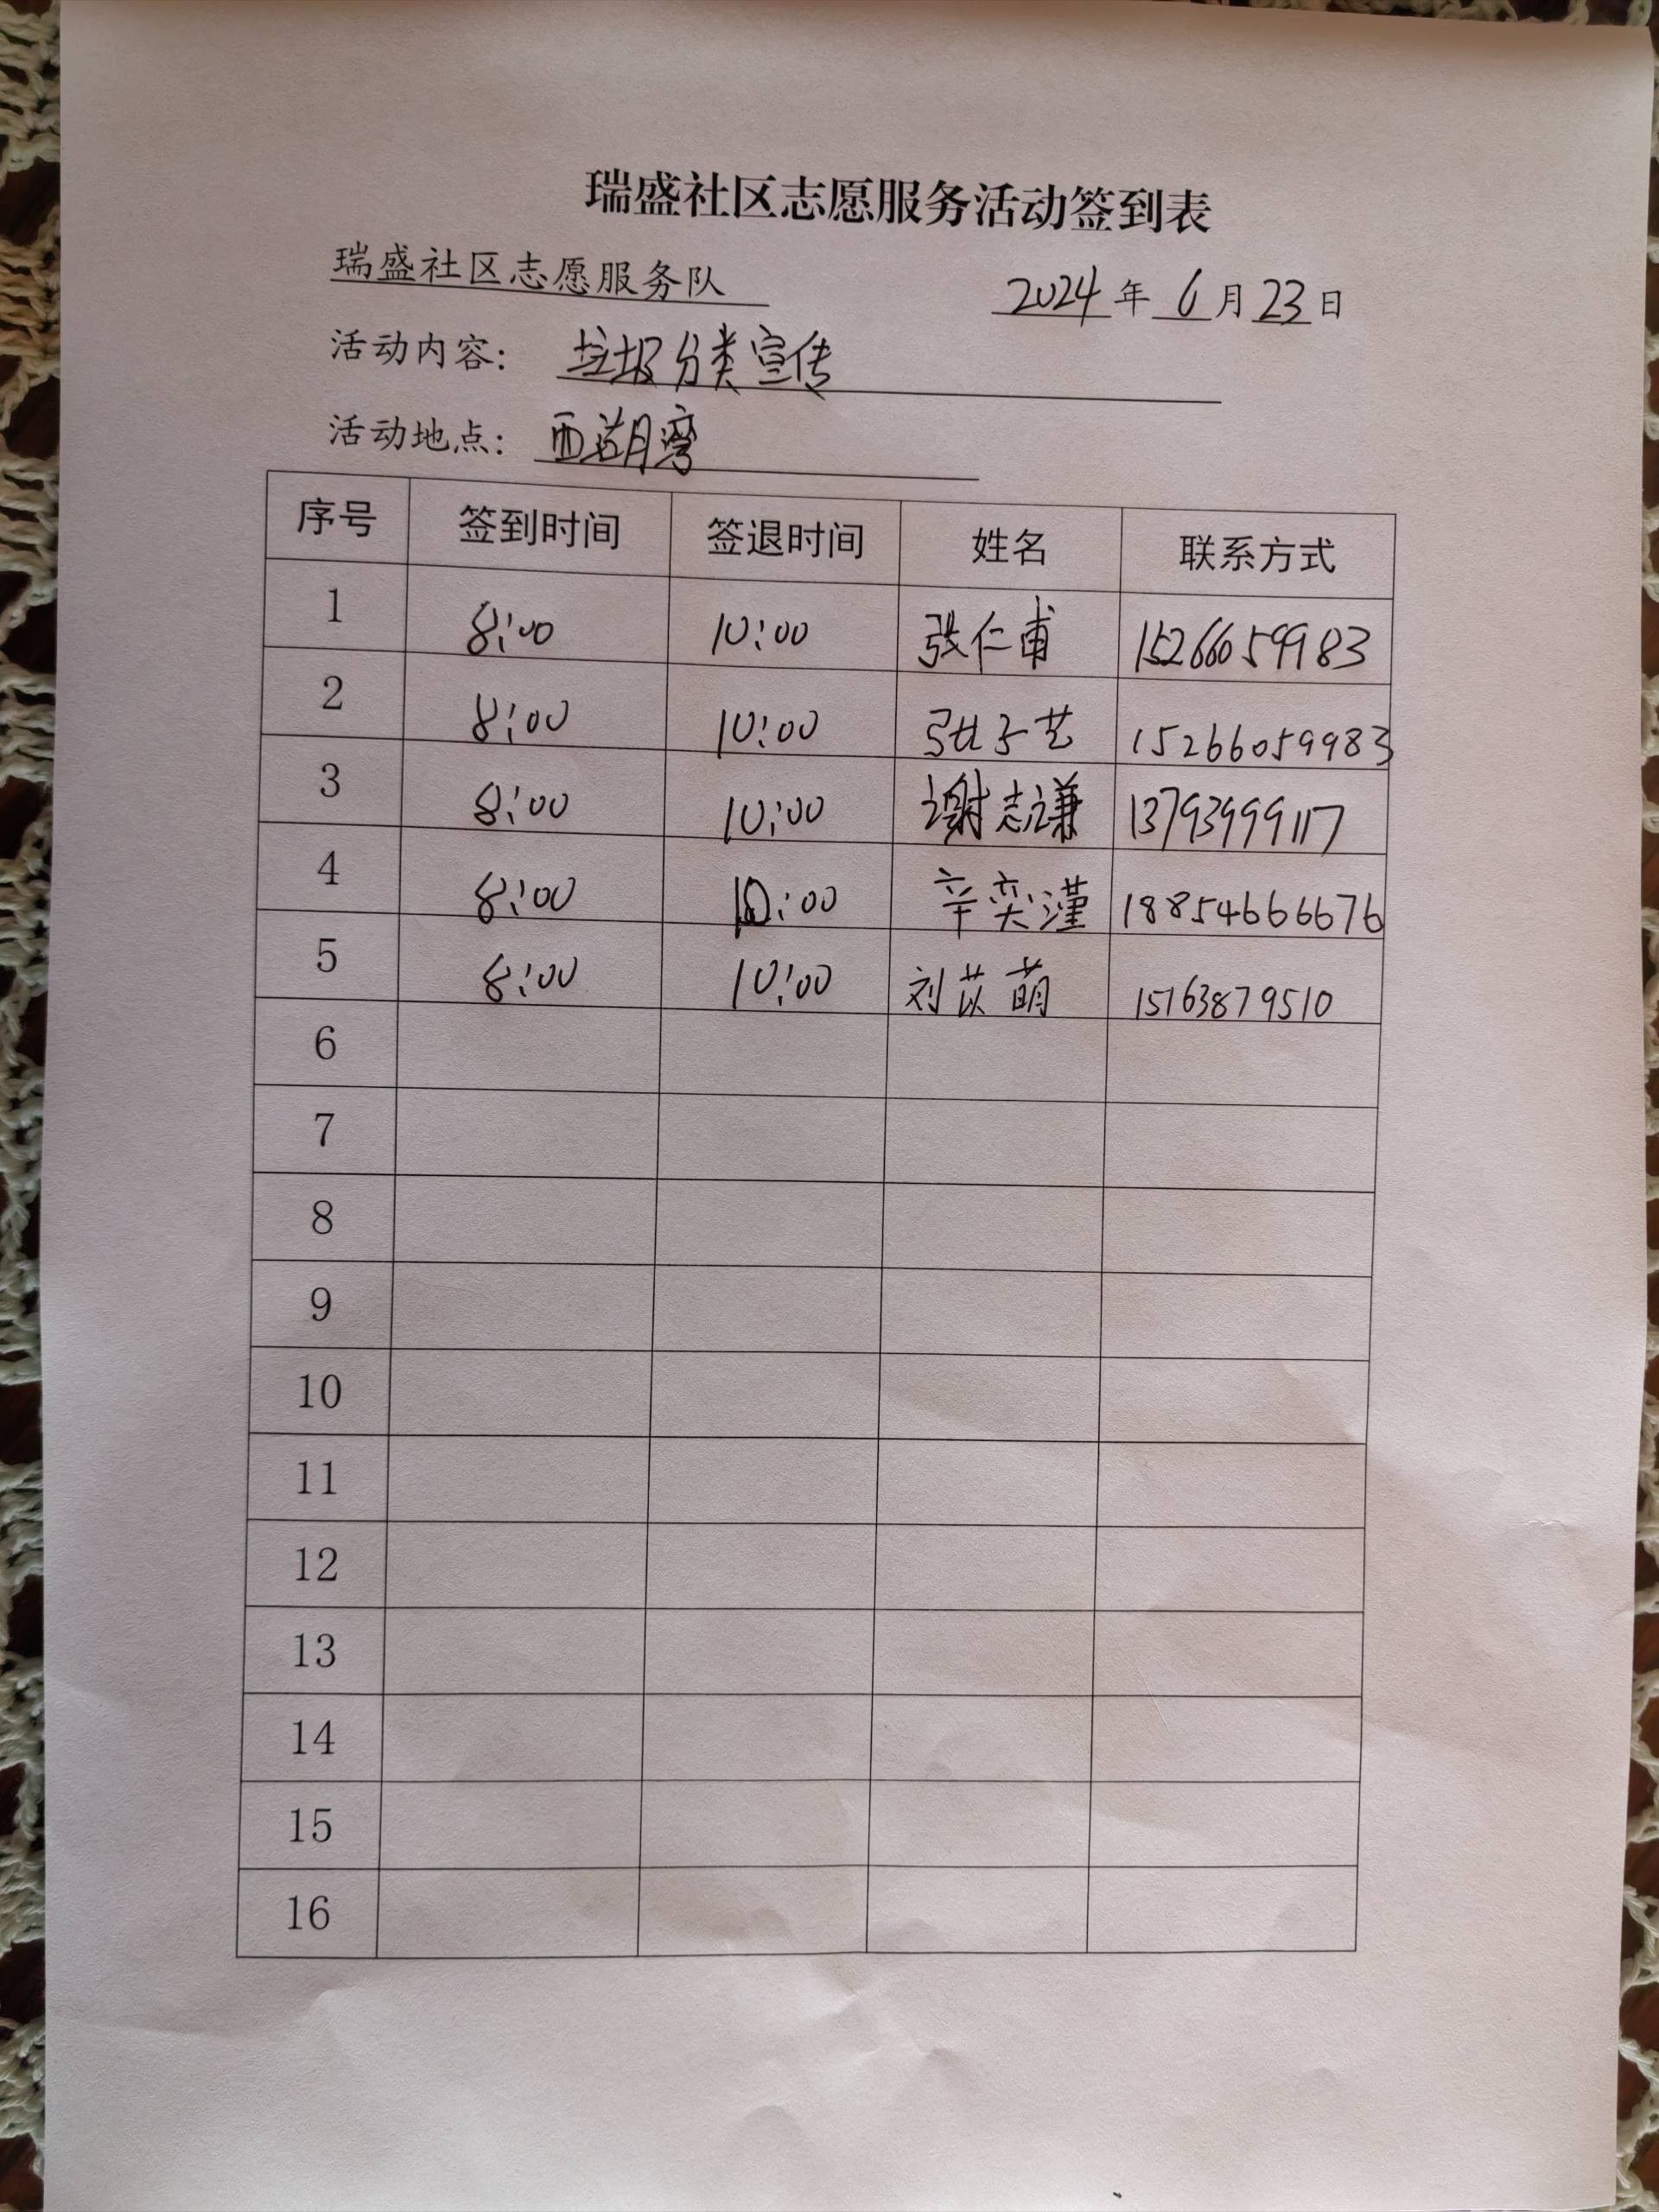 瑞盛社区志愿服务活动签到表
瑞盛社区志愿服务队 2024年6月23日
活动内容: 垃圾分类宣传
活动地点: 西湖湾
序号 签到时间 签退时间 姓名 联系方式
1 8:00 10:00 张仁甫 15266059983
2 8:00 10:00 张子艺 15266059983
3 8:00 10:00 谢志谦 13793999117
4 8:00 10:00 辛奕瑾 18854666676
5 8:00 10:00 刘苡萌 15163879510
6
7
8
9
10
11
12
13
14
15
16